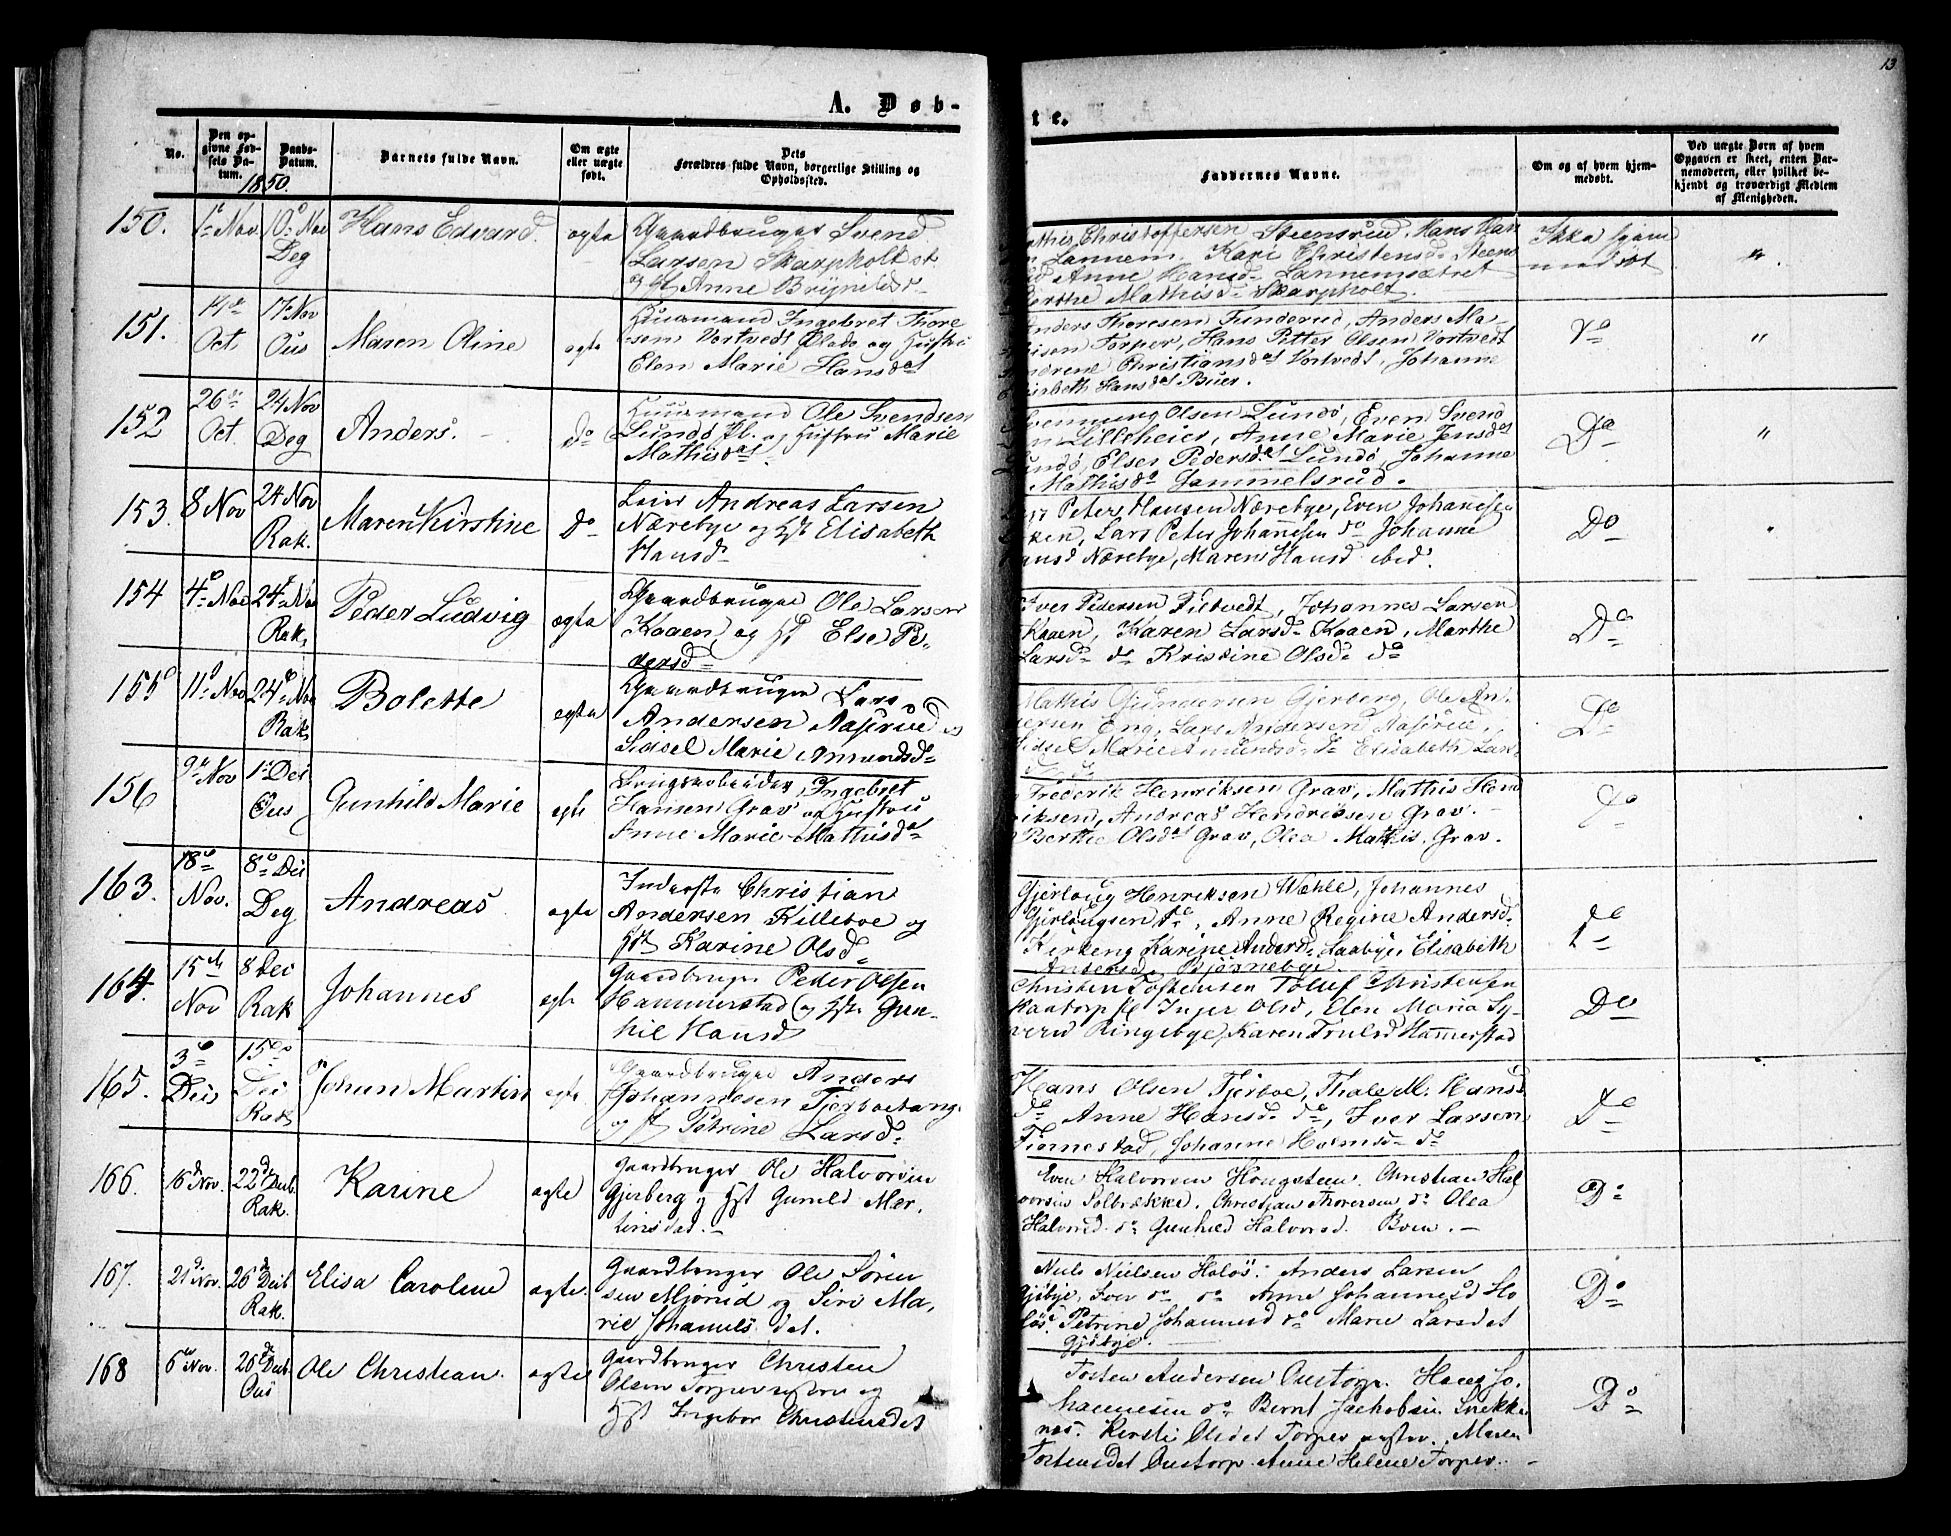 13
A. Døb-
te.
No.
Den op-
givne Fød-
sels Da-
tum.
Daabs-
Datum.
Barnets fulde Navn.
Om ægte
eller uægte
født.
Dets
Forældres fulde Navn, borgerlige Stilling og
Opholdssted.
Faddernes Navne.
Om og af hvem hjem-
medøbt.
Ved uægte Børn af hvem
Opgaven er skeet, enten Bar-
nemoderen, eller hvilket be-
kjendt og troværdigt Medlem
af Menigheden.
1850.
150.
1ste Nov.
10de Nov
Deg
Hans Edvard.
ægte
Gaardbruger Svend
Larsen Skarpholt et
og H. Anne Brynildsd.
Mathis Christoffersen Steensrud. Hans Han
Lannem. Kari Christensd. Steens
Anne Hansd. Lannemsætret
Berthe Mathisd. Skarpholt.
Ikke hjem
medøbt
"
151.
Oct.
17 Nov
Ous
Maren Oline
ægte
Huusmand Ingebret Thore
sen Vortvedt Plads og Hustru
Elen Marie Hansdat
Anders Thoresen Funderud, Anders Ma-
Torper, Hans Petter Olsen Vortvedt
Christiansdat Vortvedt, Johanne
Lisbeth Hansdat Buer.
Do
"
152
26de
Oct.
24 Nov
Deg
Anders.
Do
Huusmand Ole Svendsen
Lundø Pl. og Hustru Marie
Mathisdat
Olsen Lundø, Even Svend
Lilleheier, Anne Marie Jensdat
Lundø, Else Pedersdat Lundø, Johanne
Mathisd. Gammelsrud.
Do
"
153.
8 Nov
24 Nov
Rak.
Maren Kirstine
Do
Leier Andreas Larsen
Nærebye og Hst. Elisabeth
Hansd
Peter Hansen Nærebye, Even Johannesen
Lars Peter Johannesen do Johanne
Hansd Nærebye, Maren Hansd ibid.
Do
154
4de Nov
24de Nov
Rak.
Peder Ludvig
ægte
Gaardbruger Ole Larsen
Kaaen og H. Else Pe-
dersd
Iver Pedersen Tietvedt, Johannes Larsen
Kaaen, Karen Larsd. Kaaen, Marthe
Larsd. do Kristine Olsd. do
Do
155
11te Nov
24de Nov
Rak
Bolette
ægte
Gaardbruger Lars
Andersen Aasrud og
Sidsel Marie Amundsd.
Mathis Gundersen Gjerberg, Ole An-
dersen Eng, Lars Andersen Aasrud,
Sidsel Marie Amundsd. do Elisabeth Lars
Do
156
9de Nov
1ste Dec
Ous
Gunhild Marie
ægte
Ingebret
Hansen Grav og Hustru
Anne Marie Mathisdat
Frederik Henriksen Grav, Mathis Hend
riksen, Andreas Hendriksen Grav.
Berthe Olsdat Grav, Olea Mathis. Grav.
Do
163.
18de
Nov.
8de Dec
Deg
Andreas
ægte
Inderste Christian
Andersen Killeboe og
Hst Karine Olsd.
Gjerloug Henriksen Wehle, Johannes
Gjerlougsen do, Anne Regine Andersd.
Kirkeng Karine Andersd. Laabye, Elisabeth
Andersd. Bjørnebye.
Do
164.
15de
Nov
8 Dec
Rak
Johannes
ægte
Gaardbruger Peder Olsen
Hammerstad og Hst. Gun-
hil Hansd
Christen Tostensen Toluf Christensen
Kaatorp Inger Olsd, Elen Maria Sy-
verd Ringebye, Karen Trulsd Hammerstad
Do
165.
3de
Dec
15de
Dec
Rak
Johan Martin
ægte
Gaardbruger Anders
Johannesen Tjerboetang.
og H. Petrine Larsd.
Hans Olsen Tjerboe, Thale M. Hansd
do Anne Hansd. do, Iver Larsen
Tjernestad, Johanne Holmsd. do
Do
166.
16de Nov.
22de Decb.
Rak.
Karine
ægte
Gaardbruger Ole Halvorsen
Gjerberg og Hst Gunild Mar-
tinsdat.
Even Halvorsen Hougsteen. Christian Hal
vorsen Solbrække. Christian Thoresen do Olea
Halvorsd. do Gunhild Halvorsd. Boen.
Do
167.
21de Nov.
26de Decb.
Rak.
Elisa Caroline
ægte.
Gaardbruger Ole Søren
sen Mjørud og Siri Ma-
rie Johannesdat.
Niels Nielsen Holøs. Anders Larsen
Gjøbye, Iver do do Anne Johannesd Ho
løs. Petrine Johannesd do Maren Larsdat
Gjøbye.
Do
168
6te Nov.
26de Decb.
Ous
Ole Christian.
ægte
Gaardbruger Christen
Olsen Torper og
Hst Ingebor Christensdat
Tosten Andersen Oustorp. Hans Jo-
hannesen do Bernt Jachobsen Snekke
næs. Kirsti Olsdat Torper Maren
Tostensdat Oustorp Anne Helene Torper.
Do